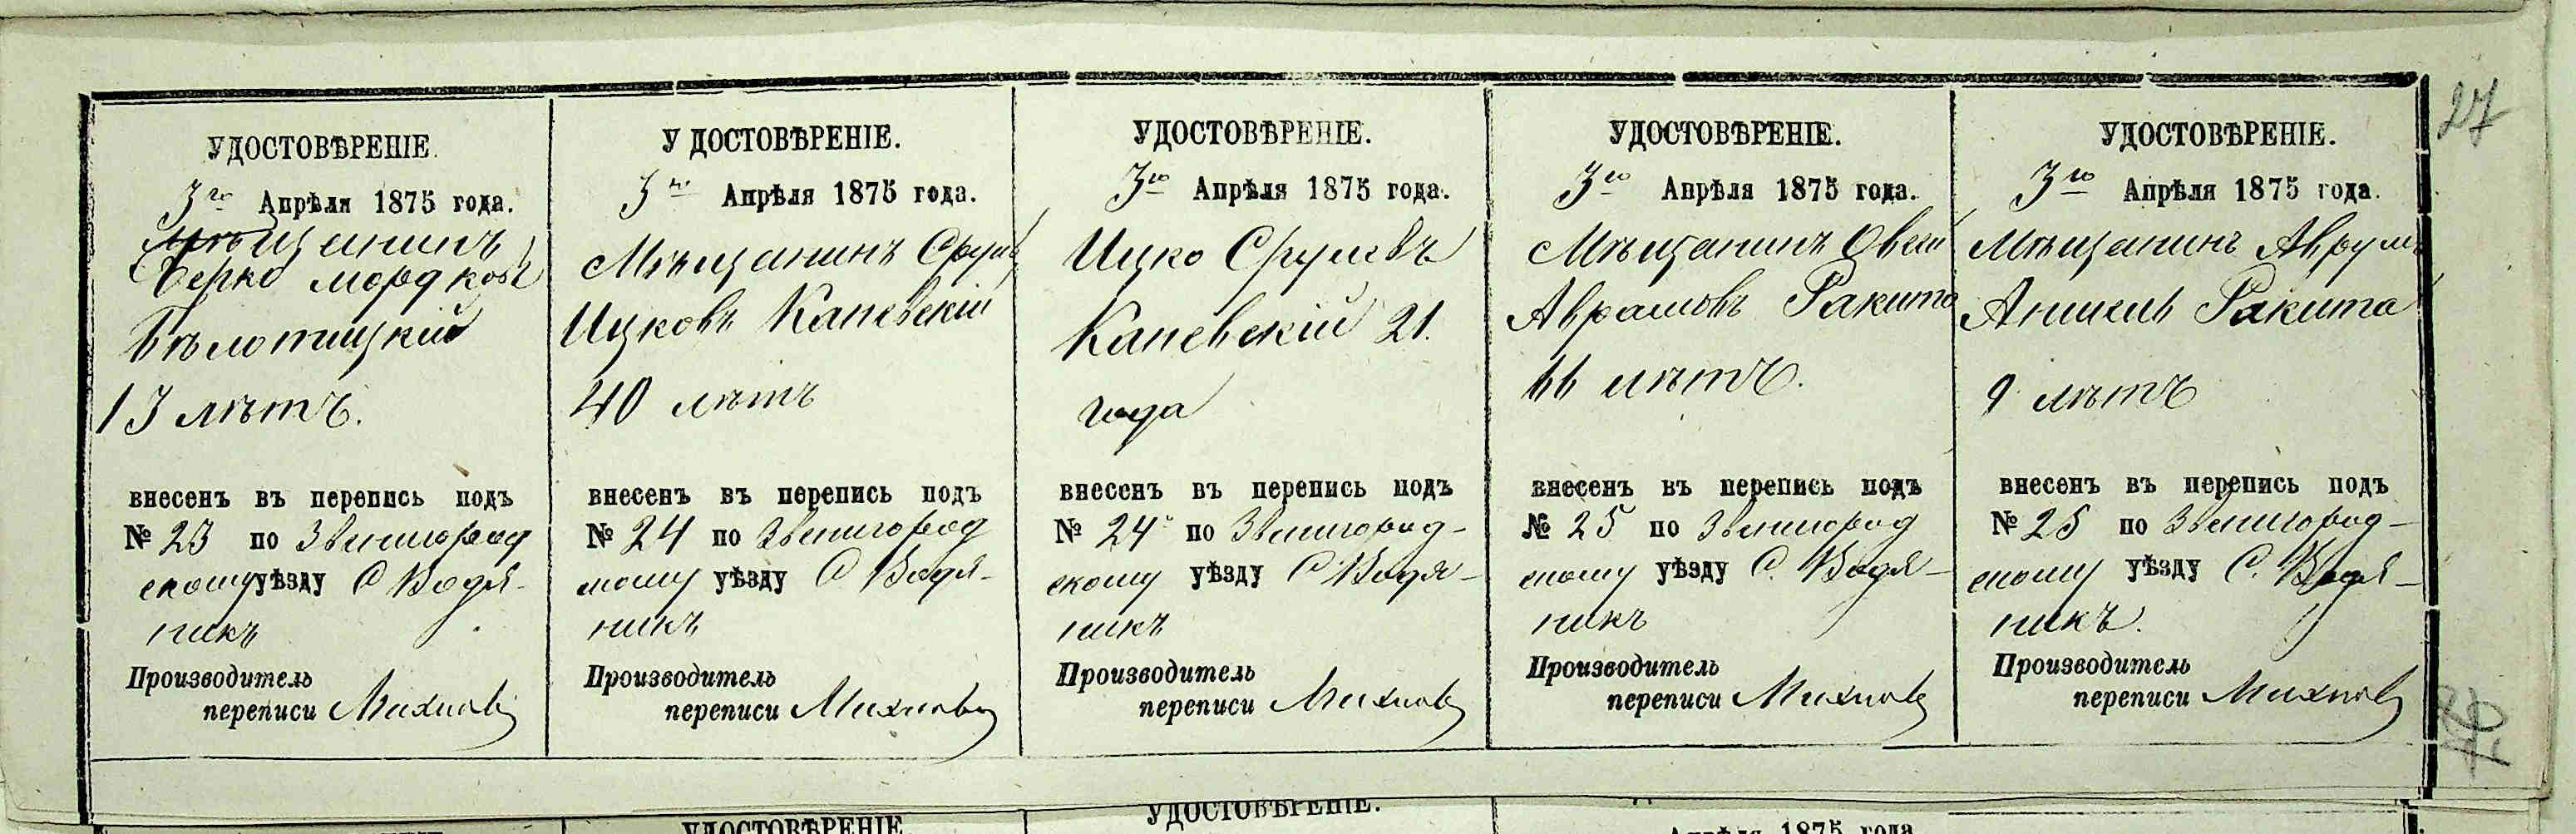 27
УДОСТОВѢРЕНІЕ.
3го Апрѣля 1875 года.
Мѣщанинъ
Берко Мордковъ
Бѣлотицкій
13 лѣтъ.
внесенъ въ перепись подъ
№ 23 по Звенигород
скому уѣзду С Водя-
никъ
Производитель
переписи
У ДОСТОВѢРЕНІЕ.
3го Апрѣля 1875 года.
Мѣщанинъ Сруль
Ицковъ Каневскій
40 лѣтъ
внесенъ въ перепись подъ
№ 24 по Звенигород
скому уѣзду С Водя-
никъ
Производитель
переписи
УДОСТОВѢРЕНІЕ.
3го Апрѣля 1875 года.
Ицко Срулевъ
Каневскій 21.
года
внесенъ въ перепись подъ
№ 24 по Звенигород-
скому уѣзду С Водя-
никъ
Производитель
переписи
УДОСТОВѢРЕНІЕ.
3го Апрѣля 1875 года.
Мѣщанинъ Овсій
Аврамовъ Ракита
лѣтъ.
внесенъ въ перепись подъ
№ 25 по Звенигород
скому уѣзду С. Водя-
никъ
Производитель
переписи
УДОСТОВѢРЕНІЕ.
3го Апрѣля 1875 года.
Мѣщанинъ Аврумъ
Аншель Ракита
9 лѣтъ
внесенъ въ перепись подъ
№ 25 по Звенигород-
скому уѣзду С. Водя-
никъ.
Производитель
переписи
УДОСТОВѢРЕНІЕ.
УДОСТОВѢРЕНІЕ.
Апрѣля 1875 года